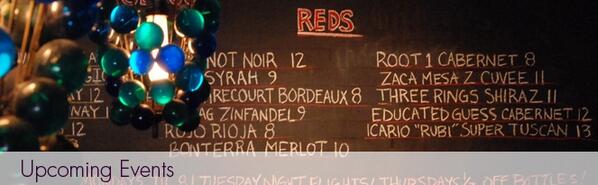 REDS
NOT NOIR 12
SYRAH 9
IRCOURT BORDEAUX 8
AG ZINFANDEL 9
ROJO RIOJA 8
BONTERRA MERLOT 10
ROOT 1 CABERNET 8
ZACA MESA Z CUVEE 11
THREE RINGS SHIRAZ 11
EDUCATED GUESS CABERNET 12
ICARIO "RUBI" SUPER TUSCAN 13
TUESDAY NIGHT FLIGHTS! THURSDAYS ½ OFF BOTTLES!
Upcoming Events